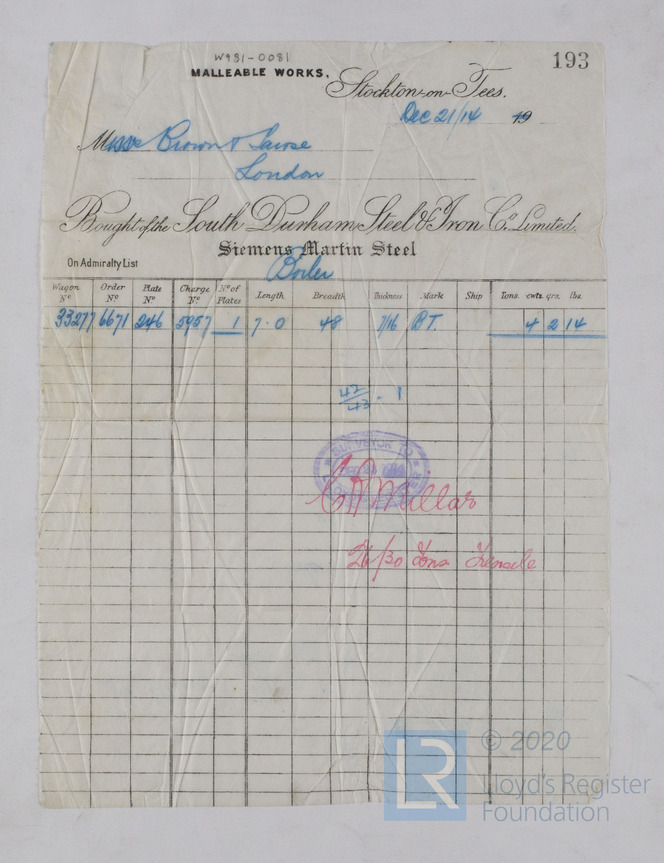 W981-0081
193
MALLEABLE WORKS.
Stockton-on-Tees.
Dec 21/14 19
Messrs Brown &
London
Bought of the South Durham Steel & Iron Co. Limited.
Siemens Martin Steel
On Admiralty List
Boiler
Wagon No Order No Plate No Charge No No of Plates Length Breadth Thickness Mark Ship Tons. cwts. qrs. lbs.
33277 6671 246 5957 1 7.0 48 7/16 BT. 4 2 14
42/43 . 1
SURVEYOR TO
Millar
26/30 Tons Tensile
LR
© 2020
Lloyd's Register
Foundation